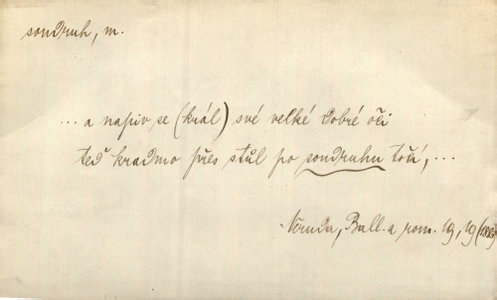 soudruh, m.
... a napiv se (král) své velké dobré oči
teď kradmo přes stůl po soudruhu točí, ...
Neruda, Ball. a rom. 19, 19